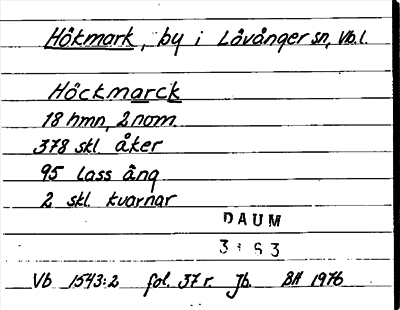 Hökmark, by i Lövånger sn, Vb.l.
Höckmarck
18 hmn, 2 nom.
378 skl. åker
95 lass äng
2 skl. kvarnar
DAUM
3:63
Vb 1543:2 fol. 37 r. Jb. BH 1976